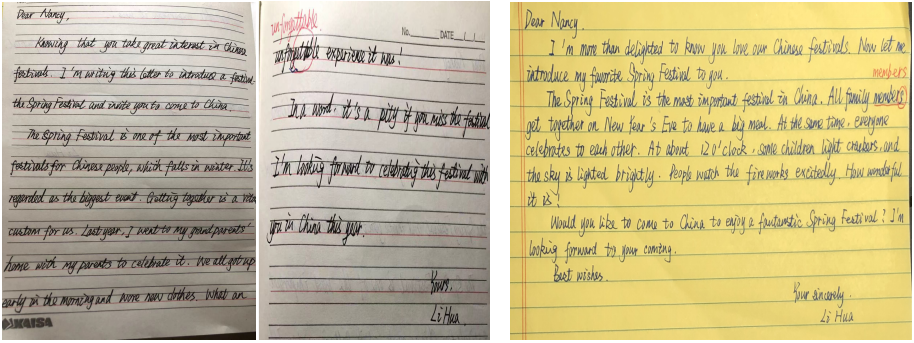 Dear Nancy,
Knowing that you take great interest in Chinese
festivals. I'm writing this letter to introduce a festival
the Spring Festival and invite you to come to China.
The Spring Festival is one of the most important
festivals for Chinese people, which falls in winter. It's
regarded as the biggest event. Getting together is a
custom for us. Last year, I went to my grandparents'
home with my parents to celebrate it. We all got up
early in the morning and wore new clothes. What an
KAISA
unforgettable
No. DATE / /
unforgettable experience it was!
In a word, it's a pity if you miss the festival
I'm looking forward to celebrating this festival with
you in China this year.
Yours,
Li Hua
Dear Nancy,
I'm more than delighted to know you love our Chinese festivals. Now let me
introduce my favorite Spring Festival to you.
members
The Spring Festival is the most important festival in China. All family members
get together on New Year's Eve to have a big meal. At the same time, everyone
celebrates to each other. At about 12 o'clock, some children light crackers, and
the sky is lighted brightly. People watch the fireworks excitedly. How wonderful
it is!
Would you like to come to China to enjoy a fautanstic Spring Festival? I'm
looking forward to your coming.
Best wishes.
Your sincerely,
Li Hua